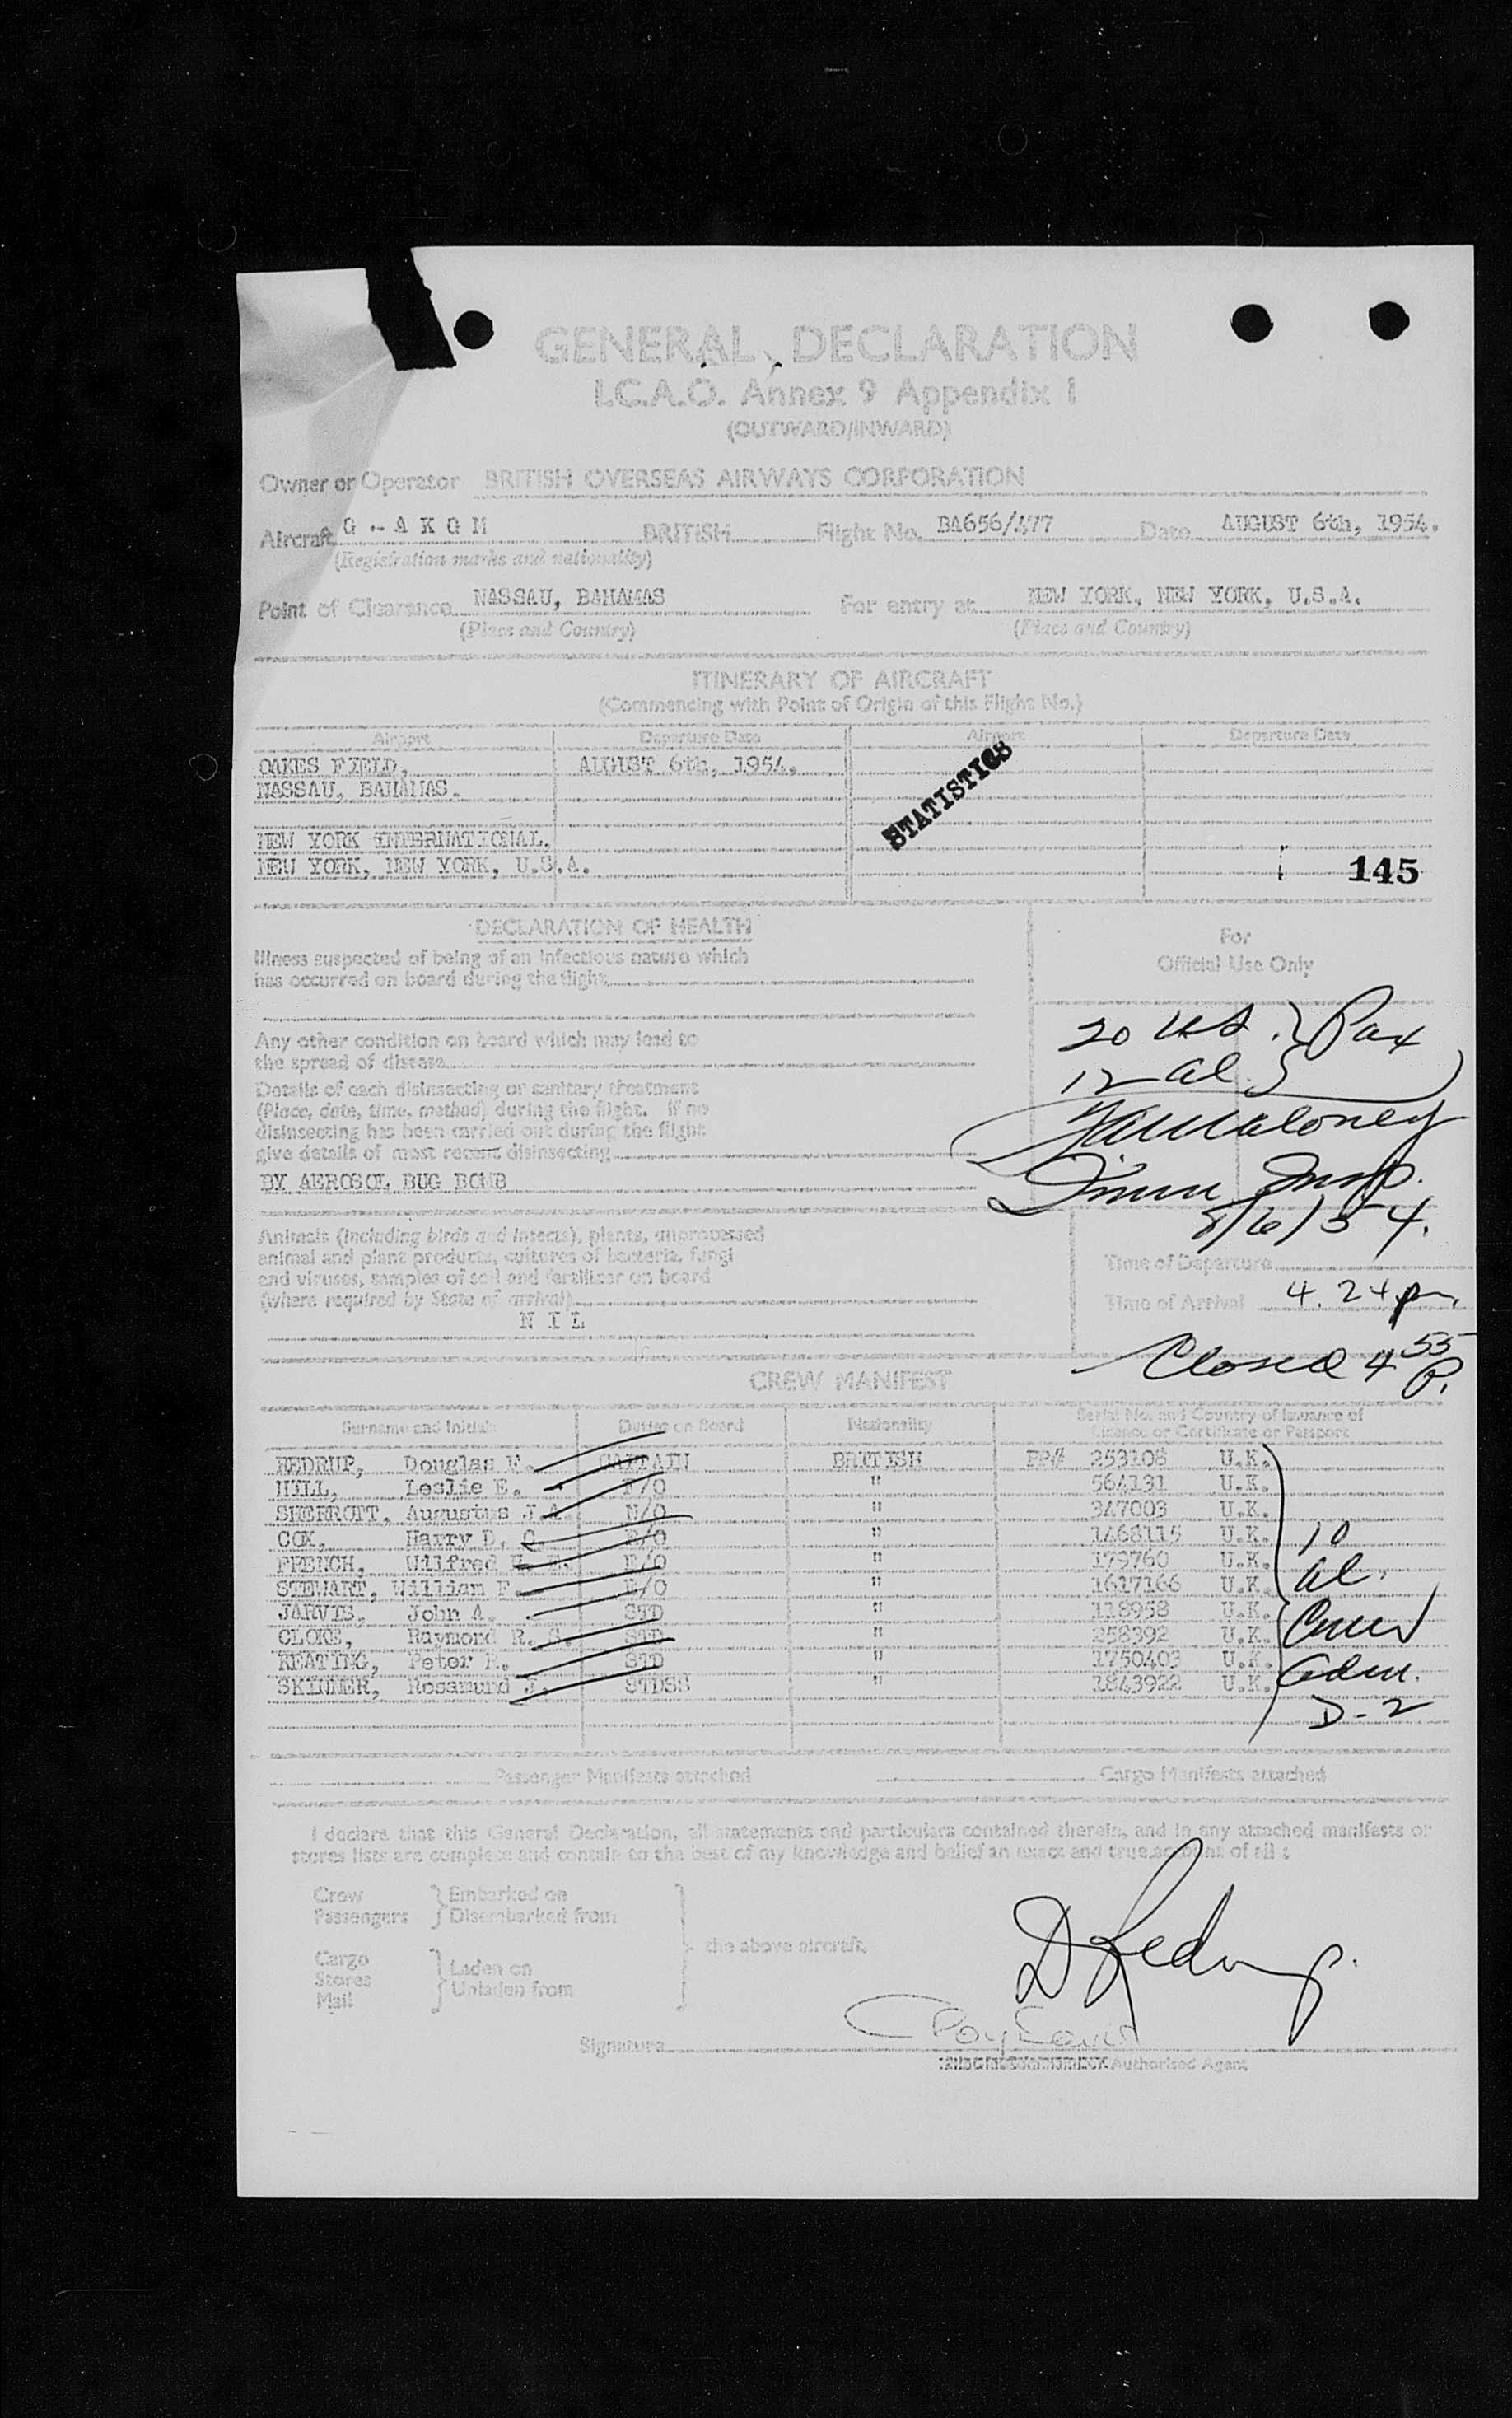 GENERAL DECLARATION
I.C.A.O. Annex 9 Appendix 1
(OUTWARD/INWARD)
Owner or Operator BRITISH OVERSEAS AIRWAYS CORPORATION
Aircraft G - A K G M BRITISH Flight No. BA656/477 Date AUGUST 6th, 1954.
(Registration marks and nationality)
Point of Clearance NASSAU, BAHAMAS For entry at NEW YORK, NEW YORK, U.S.A.
(Place and Country) (Place and Country)
ITINERARY OF AIRCRAFT
(Commencing with Point of Origin of this Flight No.)
Airport Departure Date Airport Departure Date
OAKES FIELD, AUGUST 6th, 1954.
NASSAU, BAHAMAS.
STATISTICS
NEW YORK INTERNATIONAL,
NEW YORK, NEW YORK, U.S.A.
145
DECLARATION OF HEALTH
For
Official Use Only
Illness suspected of being of an infectious nature which
has occurred on board during the flight
Any other condition on board which may lead to
the spread of disease
Details of each disinsecting or sanitary treatment
(Place, date, time, method) during the flight. If no
disinsecting has been carried out during the flight
give details of most recent disinsecting
BY AEROSOL BUG BOMB
20 US. } Pax
12 al. }
Maloney
Imm Insp.
8/6/54.
Animals (including birds and insects), plants, unprocessed
animal and plant products, cultures of bacteria, fungi
and viruses, samples of soil and fertilizer on board
(where required by State of arrival)
N I L
Time of Departure
Time of Arrival 4.24 pm
Closed 4 55 P.
CREW MANIFEST
Surname and Initials Duties on Board Nationality Serial No. and Country of Issuance of
Licence or Certificate or Passport
REDRUP, Douglas F. CAPTAIN BRITISH PP# 253108 U.K.
HILL, Leslie E. F/O " 564131 U.K.
SHERROTT, Augustus J.A. N/O " 347003 U.K.
COX, Harry D. C. R/O " 1468115 U.K.
FRENCH, Wilfred E/O " 179760 U.K.
STEWART, William F. E/O " 1617166 U.K.
JARVIS, John A. STD " 118958 U.K.
CLOKE, Raymond R. S. STD " 258392 U.K.
KEATING, Peter R. STD " 1750403 U.K.
SKINNER, Rosamund J. STDSS " 1843922 U.K.
10
al.
Crew
Adm.
D-2
Passenger Manifests attached Cargo Manifests attached
I declare that this General Declaration, all statements and particulars contained therein, and in any attached manifests or
stores lists are complete and contain to the best of my knowledge and belief an exact and true account of all :
Crew } Embarked on
Passengers } Disembarked from
the above aircraft.
Cargo
Stores } Laden on
Mail } Unladen from
D Redrup.
Signature
Authorised Agent